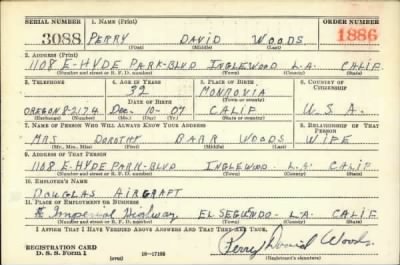 SERIAL NUMBER 1. NAME (Print) ORDER NUMBER
3088 PERRY DAVID WOODS 1886
(First) (Middle) (Last)
2. ADDRESS (Print)
1108 E-HYDE PARK-BLVD INGLEWOOD L.A. CALIF
(Number and street or R. F. D. number) (Town) (County) (State)
3. TELEPHONE 4. AGE IN YEARS 5. PLACE OF BIRTH 6. COUNTRY OF CITIZENSHIP
32 MONROVIA
DATE OF BIRTH (Town or county)
OREGON 8-2174 Dec- 10- 07 CALIF U.S.A.
(Exchange) (Number) (Mo.) (Day) (Yr.) (State or country)
7. NAME OF PERSON WHO WILL ALWAYS KNOW YOUR ADDRESS 8. RELATIONSHIP OF THAT PERSON
MRS DOROTHY BARR WOODS WIFE
(Mr., Mrs., Miss) (First) (Middle) (Last)
9. ADDRESS OF THAT PERSON
1108 E. HYDE PARK-BLVD INGLEWOOD- L.A. CALIF
(Number and street or R. F. D. number) (Town) (County) (State)
10. EMPLOYER'S NAME
DOUGLAS AIRCRAFT
11. PLACE OF EMPLOYMENT OR BUSINESS
Imperial Highway EL SEGUNDO- L.A. CALIF.
(Number and street or R. F. D. number) (Town) (County) (State)
I AFFIRM THAT I HAVE VERIFIED ABOVE ANSWERS AND THAT THEY ARE TRUE.
REGISTRATION CARD Perry David Woods
D. S. S. Form 1 (over) 16-17105 (Registrant's signature)